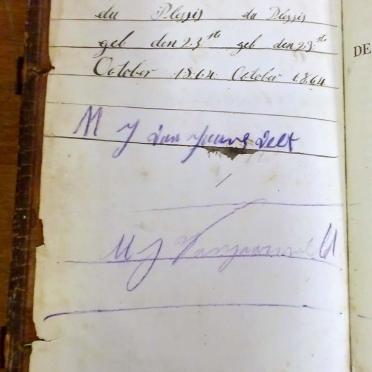 du Plessis du Plessis
geb den 23ste geb den 23ste
October 1864 October 1864
M J Van
M J
DE